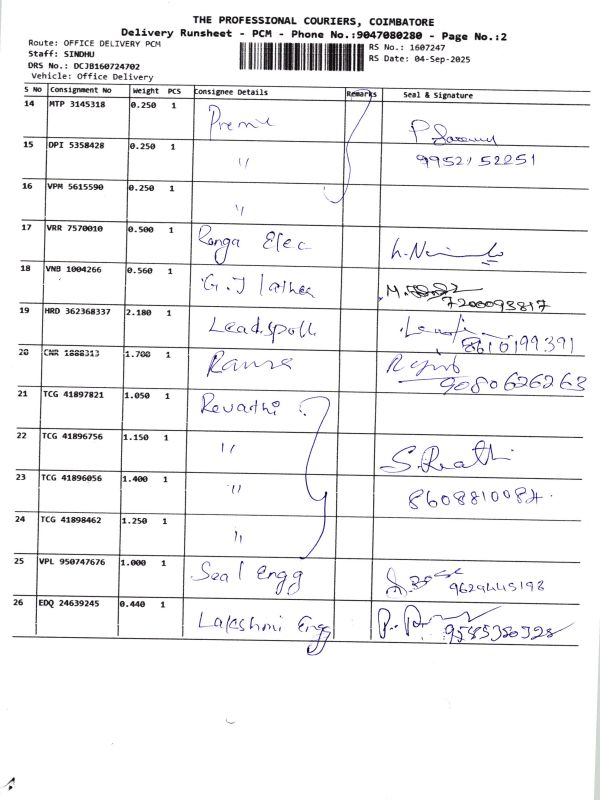 THE PROFESSIONAL COURIERS, COIMBATORE
Delivery Runsheet - PCM - Phone No.:9047080280 - Page No.:2
Route: OFFICE DELIVERY PCM RS No.: 1607247
Staff: SINDHU RS Date: 04-Sep-2025
DRS No.: DCJB160724702
Vehicle: Office Delivery
S No Consignment No Weight PCS Consignee Details Remarks Seal & Signature
14 MTP 3145318 0.250 1
15 DPI 5358428 0.250 1 〃 9952152251
16 VPM 5615590 0.250 1 〃
17 VRR 7570010 0.500 1 Ranga Elec
18 VNB 1004266 0.560 1 G.J lathea 7200093817
19 HRD 362368337 2.180 1 Leadspoll 8610199391
20 CNR 1888313 1.700 1 9080626263
21 TCG 41897821 1.050 1 Revathi
22 TCG 41896756 1.150 1 〃
23 TCG 41896056 1.400 1 〃 8608810084
24 TCG 41898462 1.250 1 〃
25 VPL 950747676 1.000 1 Seal Engg 9629445198
26 EDQ 24639245 0.440 1 Lakshmi Engg 9585350328